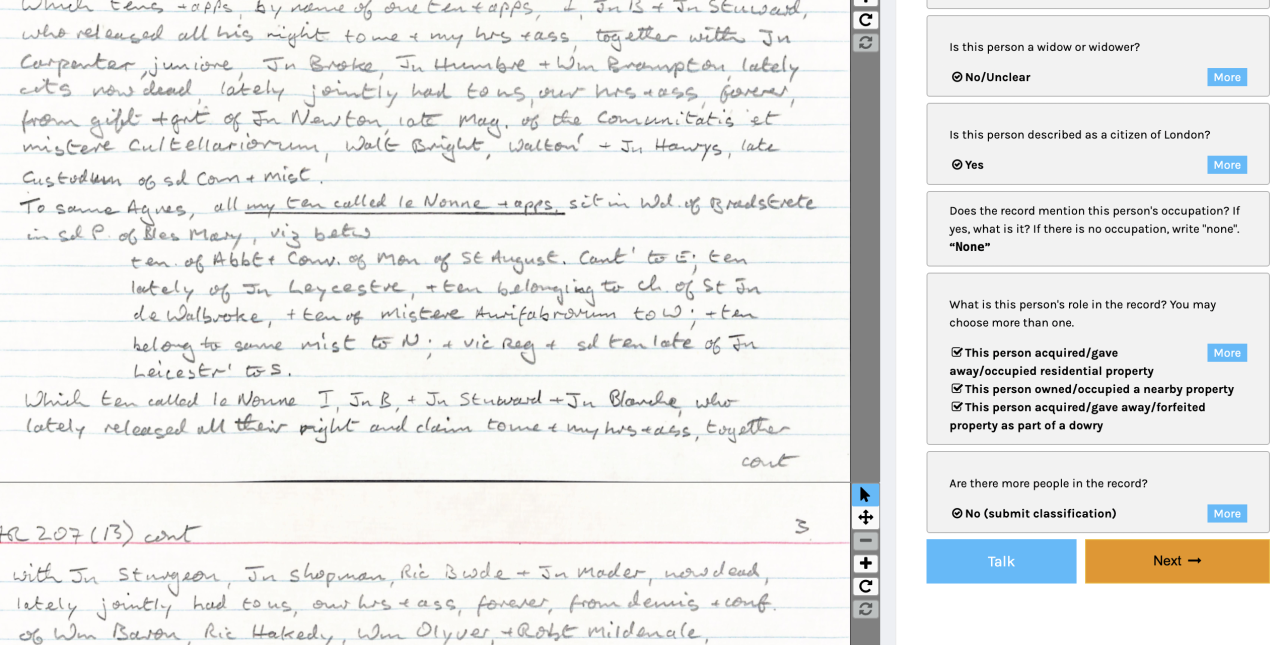 Which tens +apps, by name of one ten + apps, I, Jn B + Jn Stuward,
who released all his right to me + my hrs +ass, together with Jn
Carpenter, juniore, Jn Broke, Jn Humbre + Wm Brampton, lately
cits now dead, lately jointly had to us, our hrs +ass, forever,
from gift +grt of Jn Newton, late Mag. of the Comunitatis et
mistere Cultellariorum, Walt Bright, Walton' + Jn Hawys, late
Custodum of sd Com + mist.
To same Agnes, all my ten called le Nonne +apps, sit in Wd. of Bradstrete
in sd P. of Bles Mary, viz betw
ten of Abbt + Conv. of Mon of St August. Cant' to E; ten
lately of Jn Leycestre, + ten belonging to ch. of St Jn
de Walbroke, + ten of mistere Aurifabrorum to W; + ten
belong to same mist to N; + vic Reg + sd ten late of Jn
Leicestr' to S.
Which ten called le Nonne I, Jn B, + Jn Stuward + Jn Blanche, who
lately released all their right and claim to me + my hrs +ass, together
cont
HR 207 (13) cont 3
with Jn Sturgeon, Jn Shopman, Ric Bwde + Jn Mader, now dead,
lately jointly had to us, our hrs + ass, forever, from demis + conf.
of Wm Baron, Ric Hakedy, Wm Olyver, + Robt Mildenale,
Is this person a widow or widower?
No/Unclear More
Is this person described as a citizen of London?
Yes More
Does the record mention this person's occupation? If
yes, what is it? If there is no occupation, write "none".
“None”
What is this person's role in the record? You may
choose more than one.
This person acquired/gave More
away/occupied residential property
This person owned/occupied a nearby property
This person acquired/gave away/forfeited
property as part of a dowry
Are there more people in the record?
No (submit classification) More
Talk Next →